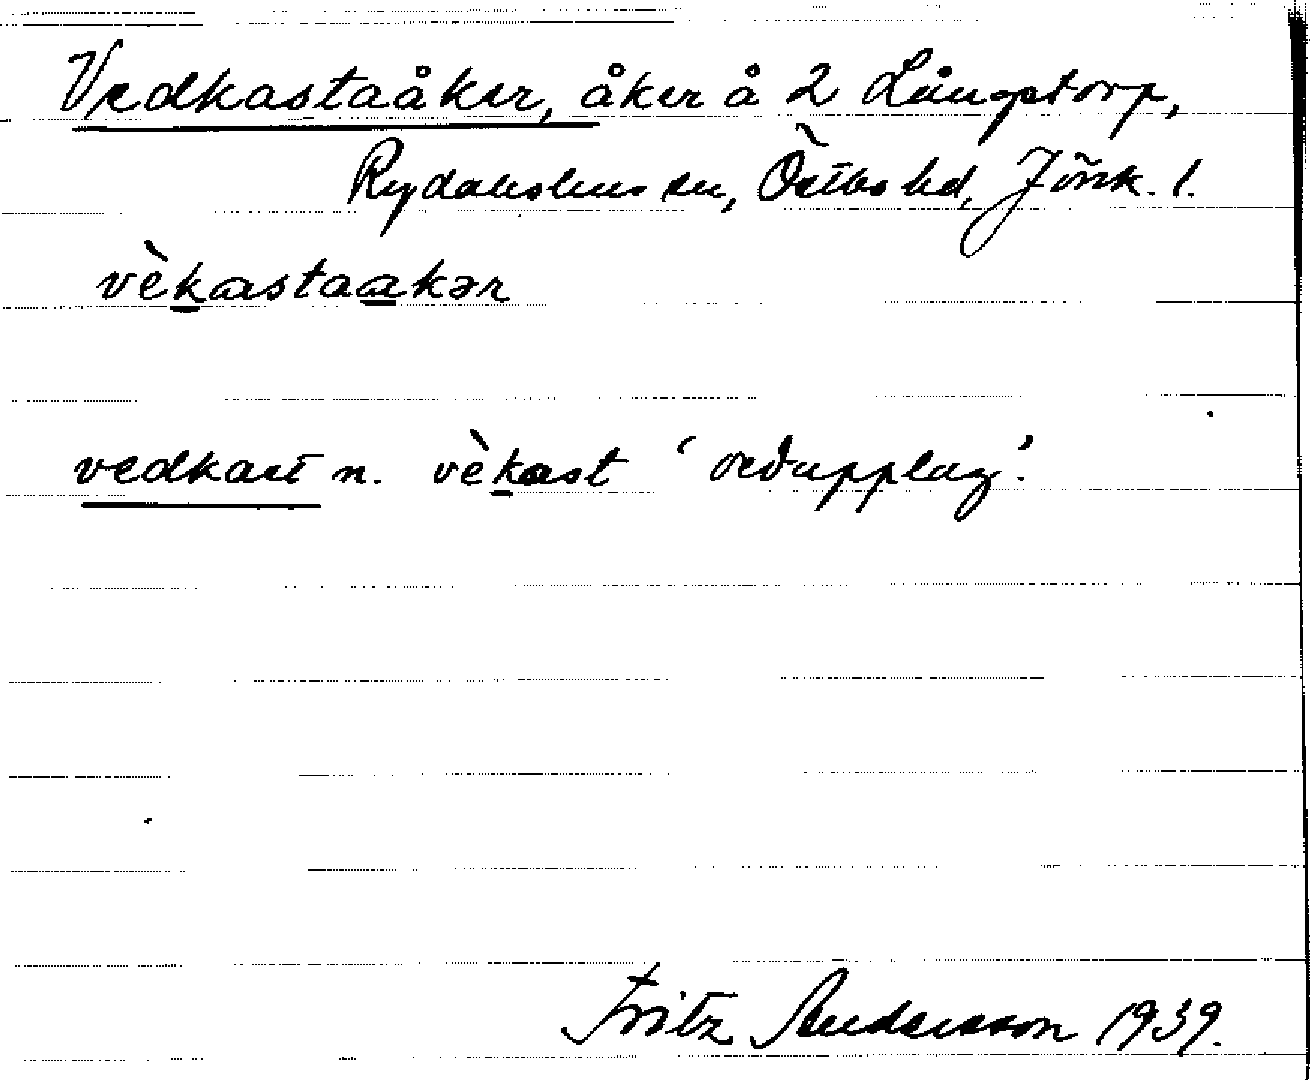 Vedkastaåker, åker å 2 Långstorp,
Rydaholms sn, Östbo hd, Jönk. l.
vèkastaakər
vedkast n. vèkast 'vedupplag'.
Fritz Andersson 1939.